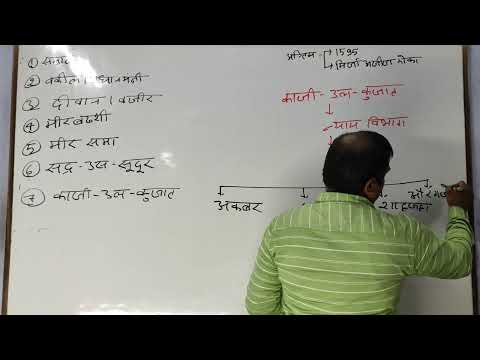 ① सम्राट
② वकील / प्रधानमंत्री
③ दीवान / वजीर
④ मीरबख्शी
⑤ मीर समा
⑥ सद्र-उस-सूदूर
⑦ काजी-उल-कुजात
अन्तिम → 1595
→ मिर्जा अजीज कोका
काजी-उल-कुजात
↓
न्याय विभाग
↓
अकबर
शाहजहां